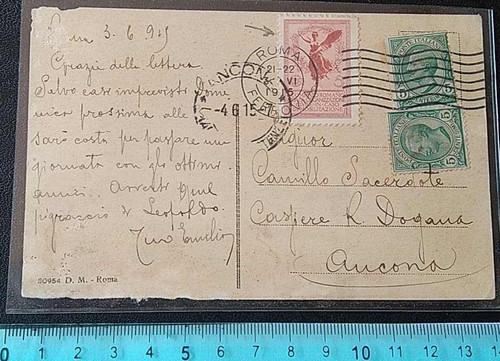 3.6.915
Grazie della lettera
Salvo casi imprevisti Dome
nica prossima alle
sarò costà per passare una
giornata con gli ottimi
amici.
Leopoldo
Tuo Emilio
30954 D. M. - Roma
ROMA
21-22
VI
1915
FERROVIA
ANCONA
-4.6.15-
5
5
Signor
Camillo Sacerdote
Cassiere R. Dogana
Ancona
0 1 2 3 4 5 6 7 8 9 10 11 12 13